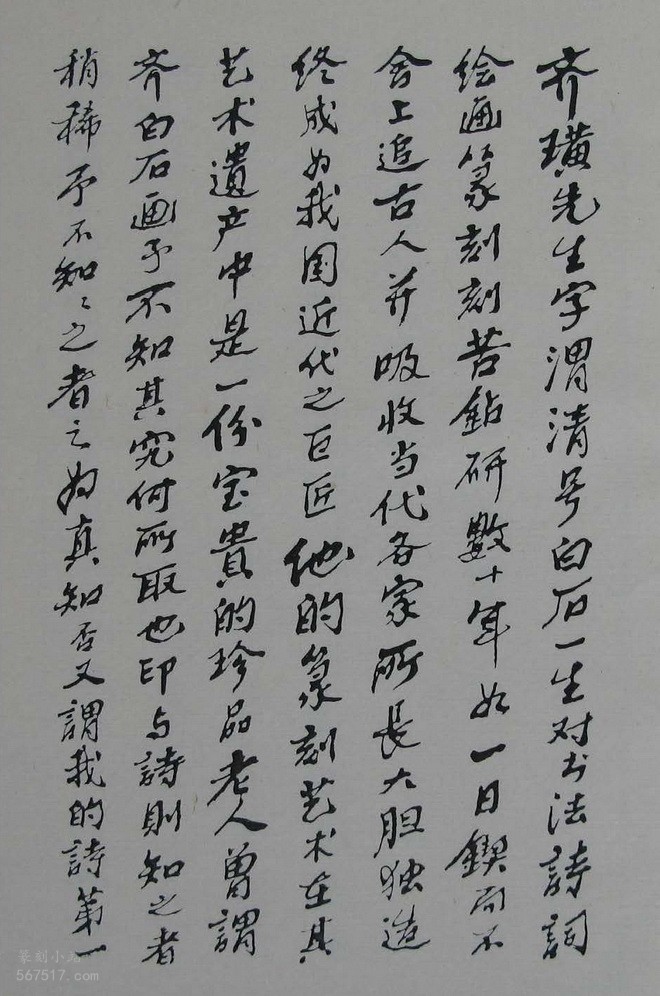 齐璜先生字渭清号白石一生对书法詩詞
绘画篆刻刻苦鉆研數十年如一日鍥而不
舍上追古人并吸收当代各家所長大胆独造
终成为我国近代之巨匠他的篆刻艺术在其
艺术遺产中是一份宝貴的珍品老人曾謂
齐白石画予不知其究何所取也印与詩則知之者
稍稀予不知知之者之为真知否又謂我的詩第一
篆刻小站
567517.com